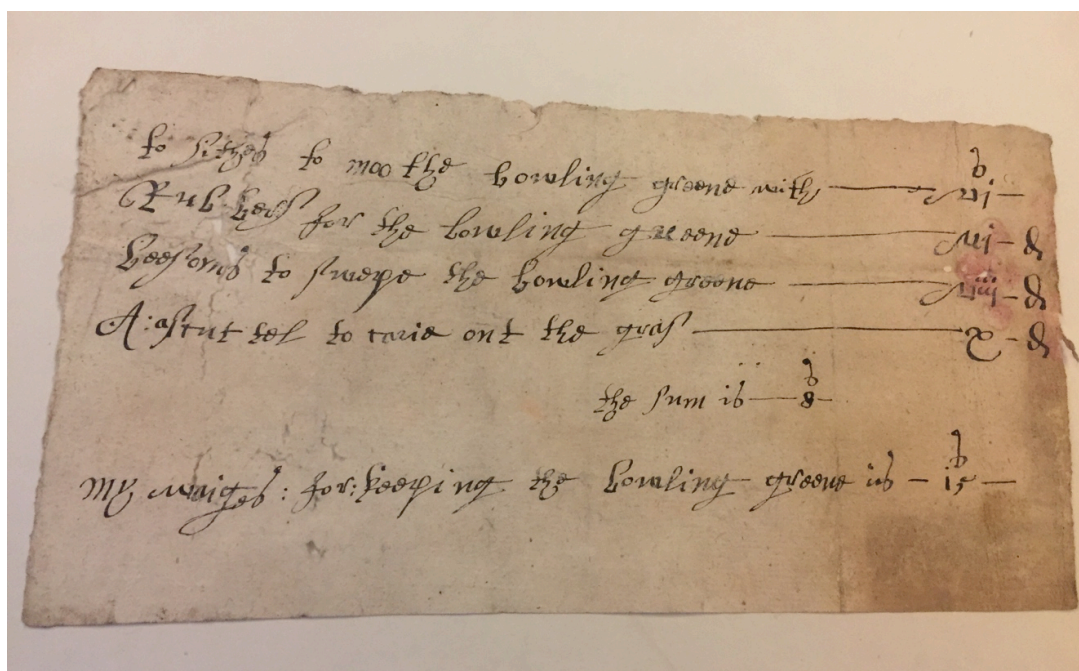 to sithes to moo the bowling greene with — vj s —
Rubbers for the bowling greene — vj - d
beesoms to swepe the bowling greene — viij - d
A: ascut tel to carie out the gras — x - d
the sum is — 8 s —
my waiges : for : keeping the bowling greene is - 15 s —